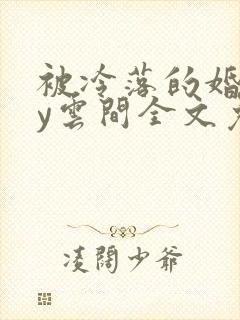 被冷落的婚
y雲間全文
凌闊少爺